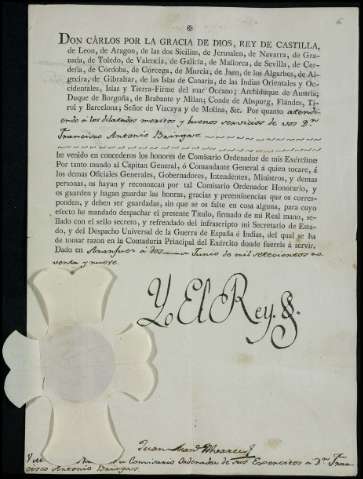 DON CÁRLOS POR LA GRACIA DE DIOS, REY DE CASTILLA,
de Leon, de Aragon, de las dos Sicilias, de Jerusalen, de Navarra, de Gra-
nada, de Toledo, de Valencia, de Galicia, de Mallorca, de Sevilla, de Cer-
deña, de Córdoba, de Córcega, de Murcia, de Jaen, de los Algarbes, de Al-
gecira, de Gibraltar, de las Islas de Canaria, de las Indias Orientales y Oc-
cidentales, Islas y Tierra-Firme del mar Océano; Archiduque de Austria;
Duque de Borgoña, de Brabante y Milan; Conde de Abspurg, Flándes, Ti-
rol y Barcelona; Señor de Vizcaya y de Molina, &c. Por quanto atendi-
endo á los dilatados meritos y buenos servicios de vos Dn.
Francisco Antonio
he venido en concederos los honores de Comisario Ordenador de mis Exércitos
Por tanto mando al Capitan General, ó Comandante General á quien tocare, á
los demas Oficiales Generales, Gobernadores, Intendentes, Ministros, y demas
personas, os hayan y reconozcan por tal Comisario Ordenador Honorario, y
os guarden y hagan guardar las honras, gracias y preeminencias que os corres-
ponden, y deben ser guardadas, sin que se os falte en cosa alguna, para cuyo
efecto he mandado despachar el presente Título, firmado de mi Real mano, se-
llado con el sello secreto, y refrendado del infrascripto mi Secretario de Esta-
do, y del Despacho Universal de la Guerra de España é Indias, del qual se ha
de tomar razon en la Contaduría Principal del Exército donde fuereis á servir.
Dado en Aranjuez á dos Junio de mil setecientos no-
venta y nueve
Yo El Rey.
Juan
Comisario Ordenador de sus Exercitos a Dn. Fran-
cisco Antonio